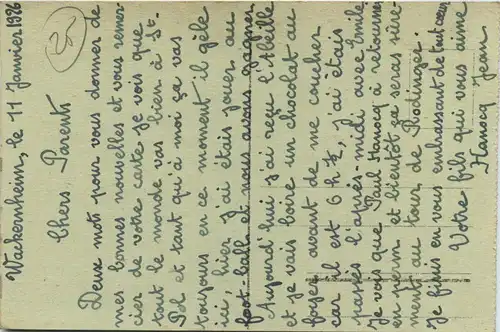 Wackernheim, le 11 Janvier 1926
Chers Parents
Deux mots pour vous donner de
mes bonnes nouvelles et vous remer-
cier de votre carte je vois que
tout le monde vas bien à St.
Pol et tant qu'à moi ça vas
toujours en ce moment il gèle
ici hier j'ai étais jouer au
foot-ball et nous avons gagner
Aujourd'hui j'ai reçu l'Abeille
et je vais boire un chocolat au
foyer avant de me coucher
car il est 6 h ½, j'ai étais
passés l'après-midi avec Emile
je vois que Paul Hanocq à retourner
en perm et bientôt ça seras sûre-
ment au tour de Rodinger.
je finis en vous embrassant de tout cœur
Votre fils qui vous aime
Hanocq Jean